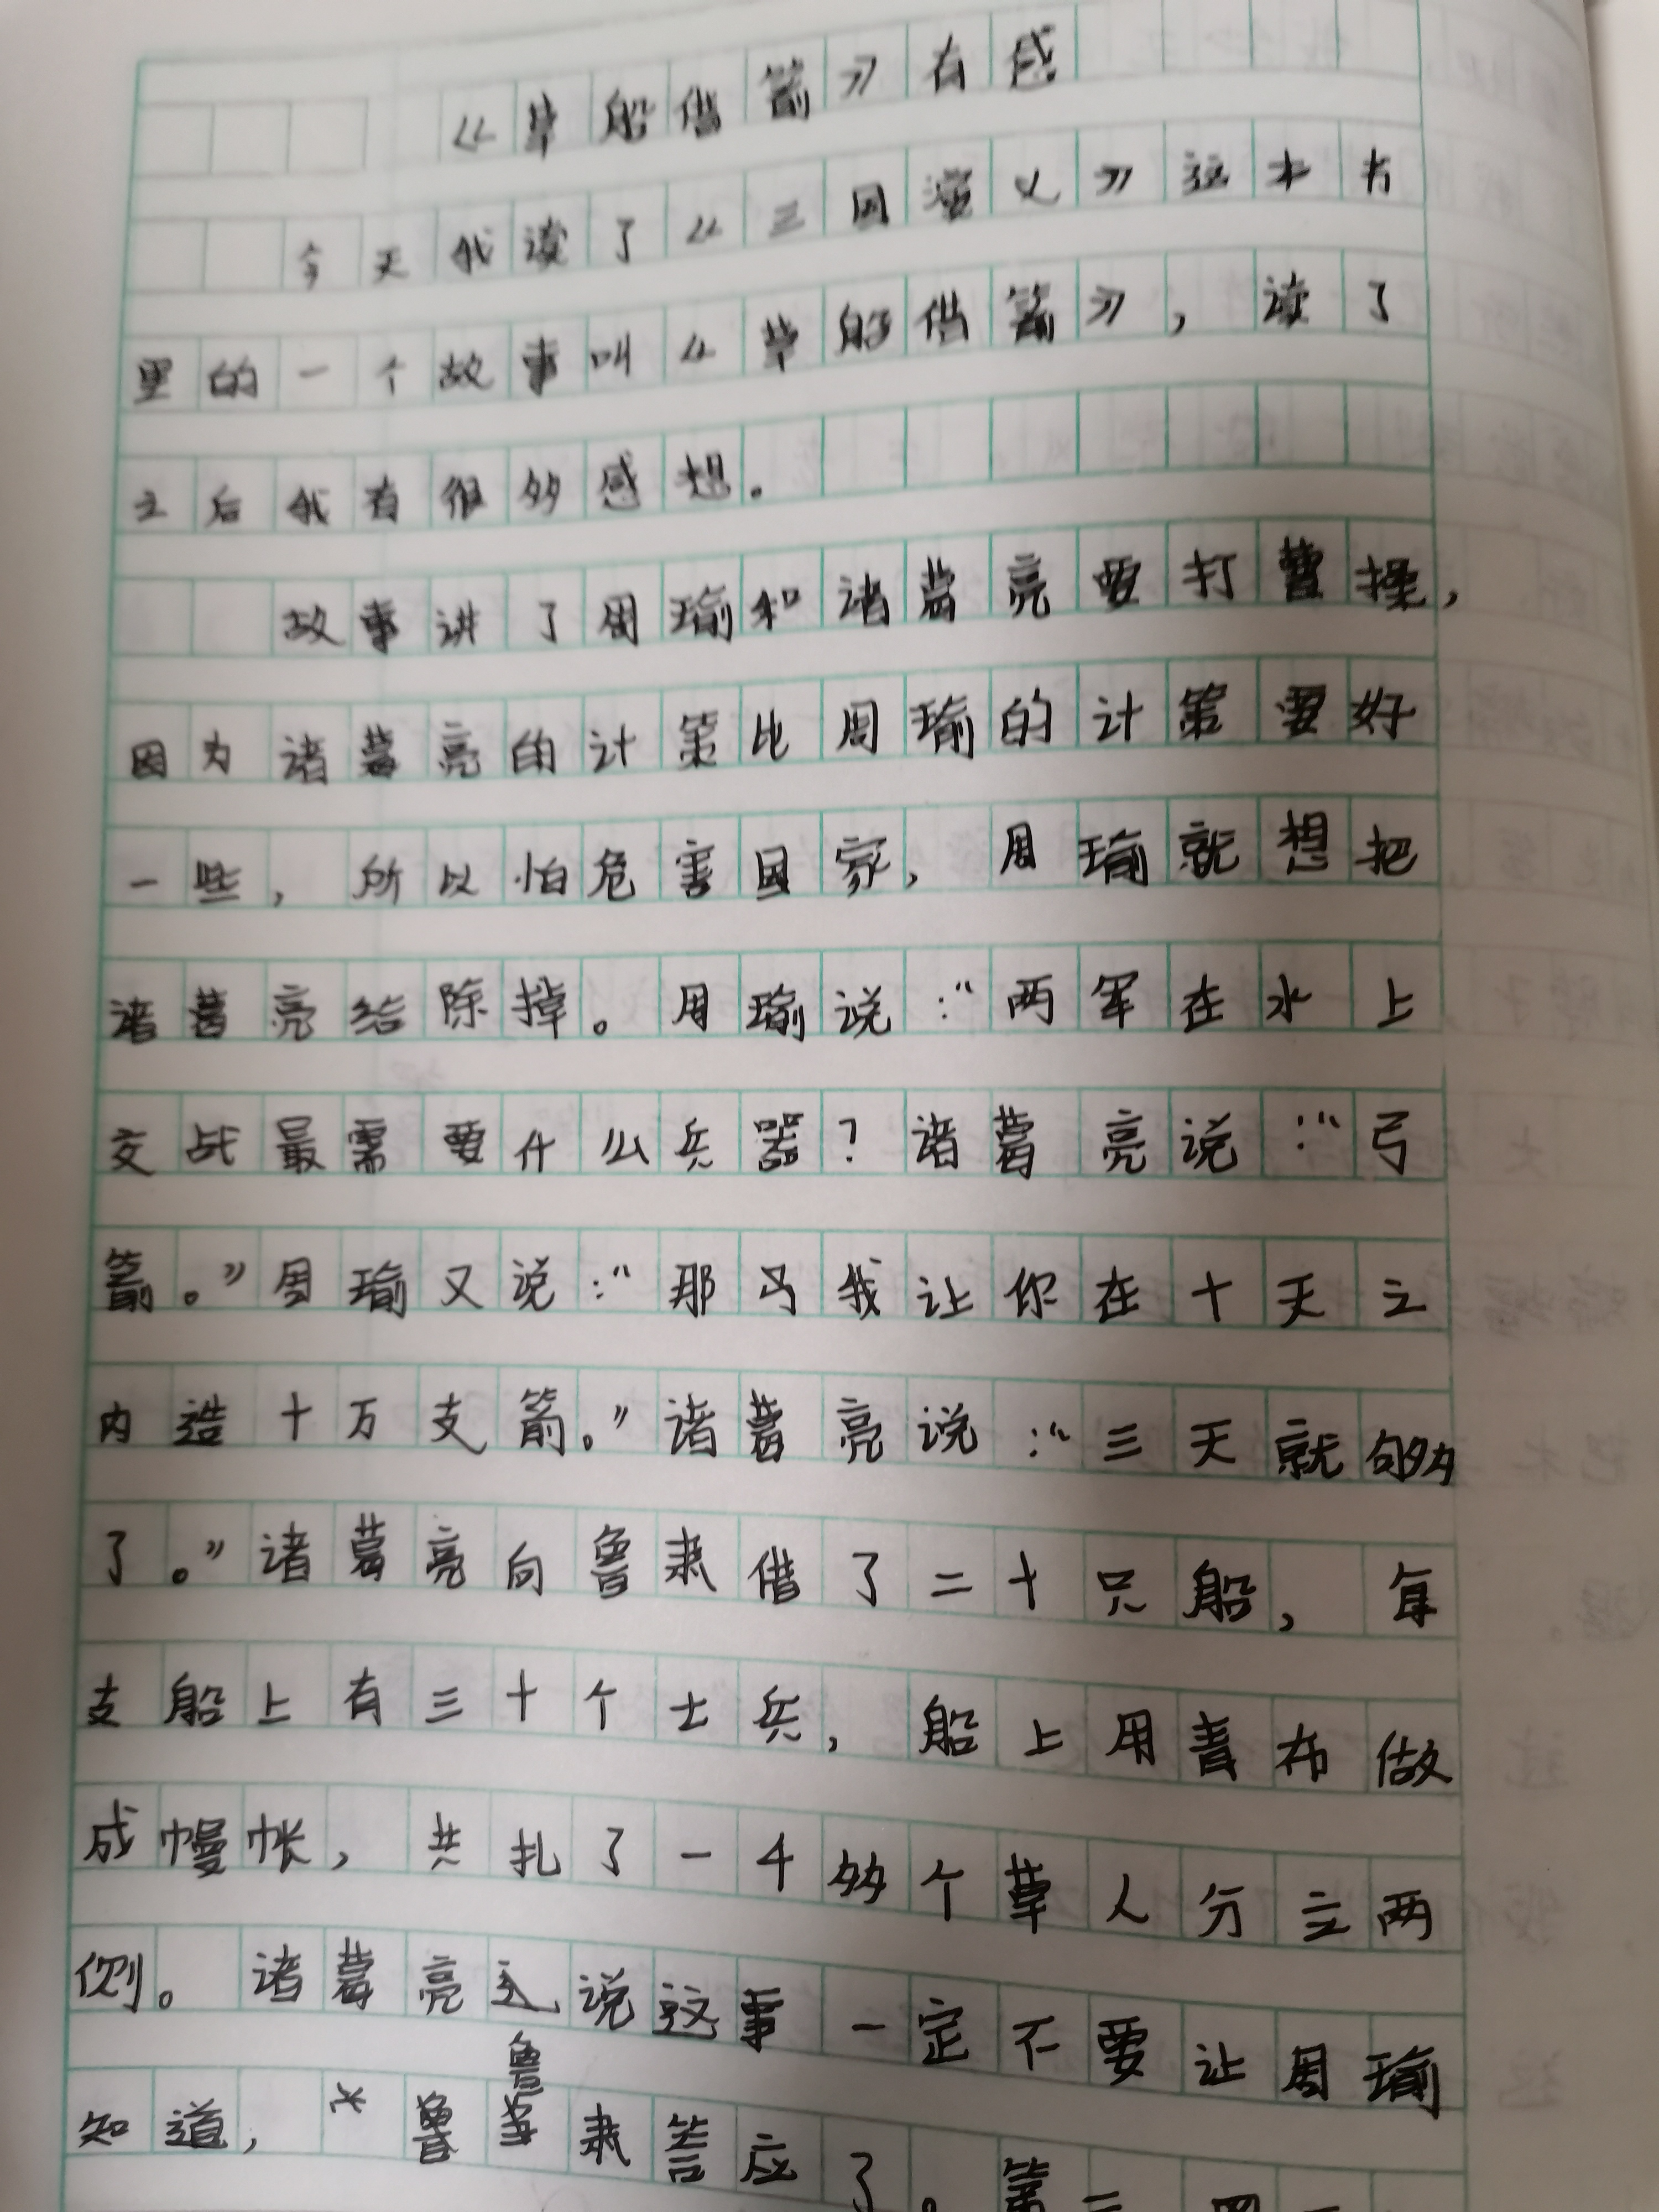 《草船借箭》有感
今天我读了《三国演义》这本书
里的一个故事叫《草船借箭》，读了
之后我有很多感想。
故事讲了周瑜和诸葛亮要打曹操，
因为诸葛亮的计策比周瑜的计策要好
一些，所以怕危害国家，周瑜就想把
诸葛亮给除掉。周瑜说：“两军在水上
交战最需要什么兵器？诸葛亮说：“弓
箭。”周瑜又说：“那么我让你在十天之
内造十万支箭。”诸葛亮说：“三天就够
了。”诸葛亮向鲁肃借了二十只船，每
支船上有三十个士兵，船上用青布做
成幔帐，共扎了一千多个草人分立两
侧。诸葛亮还说这事一定不要让周瑜
知道，鲁肃答应了。第